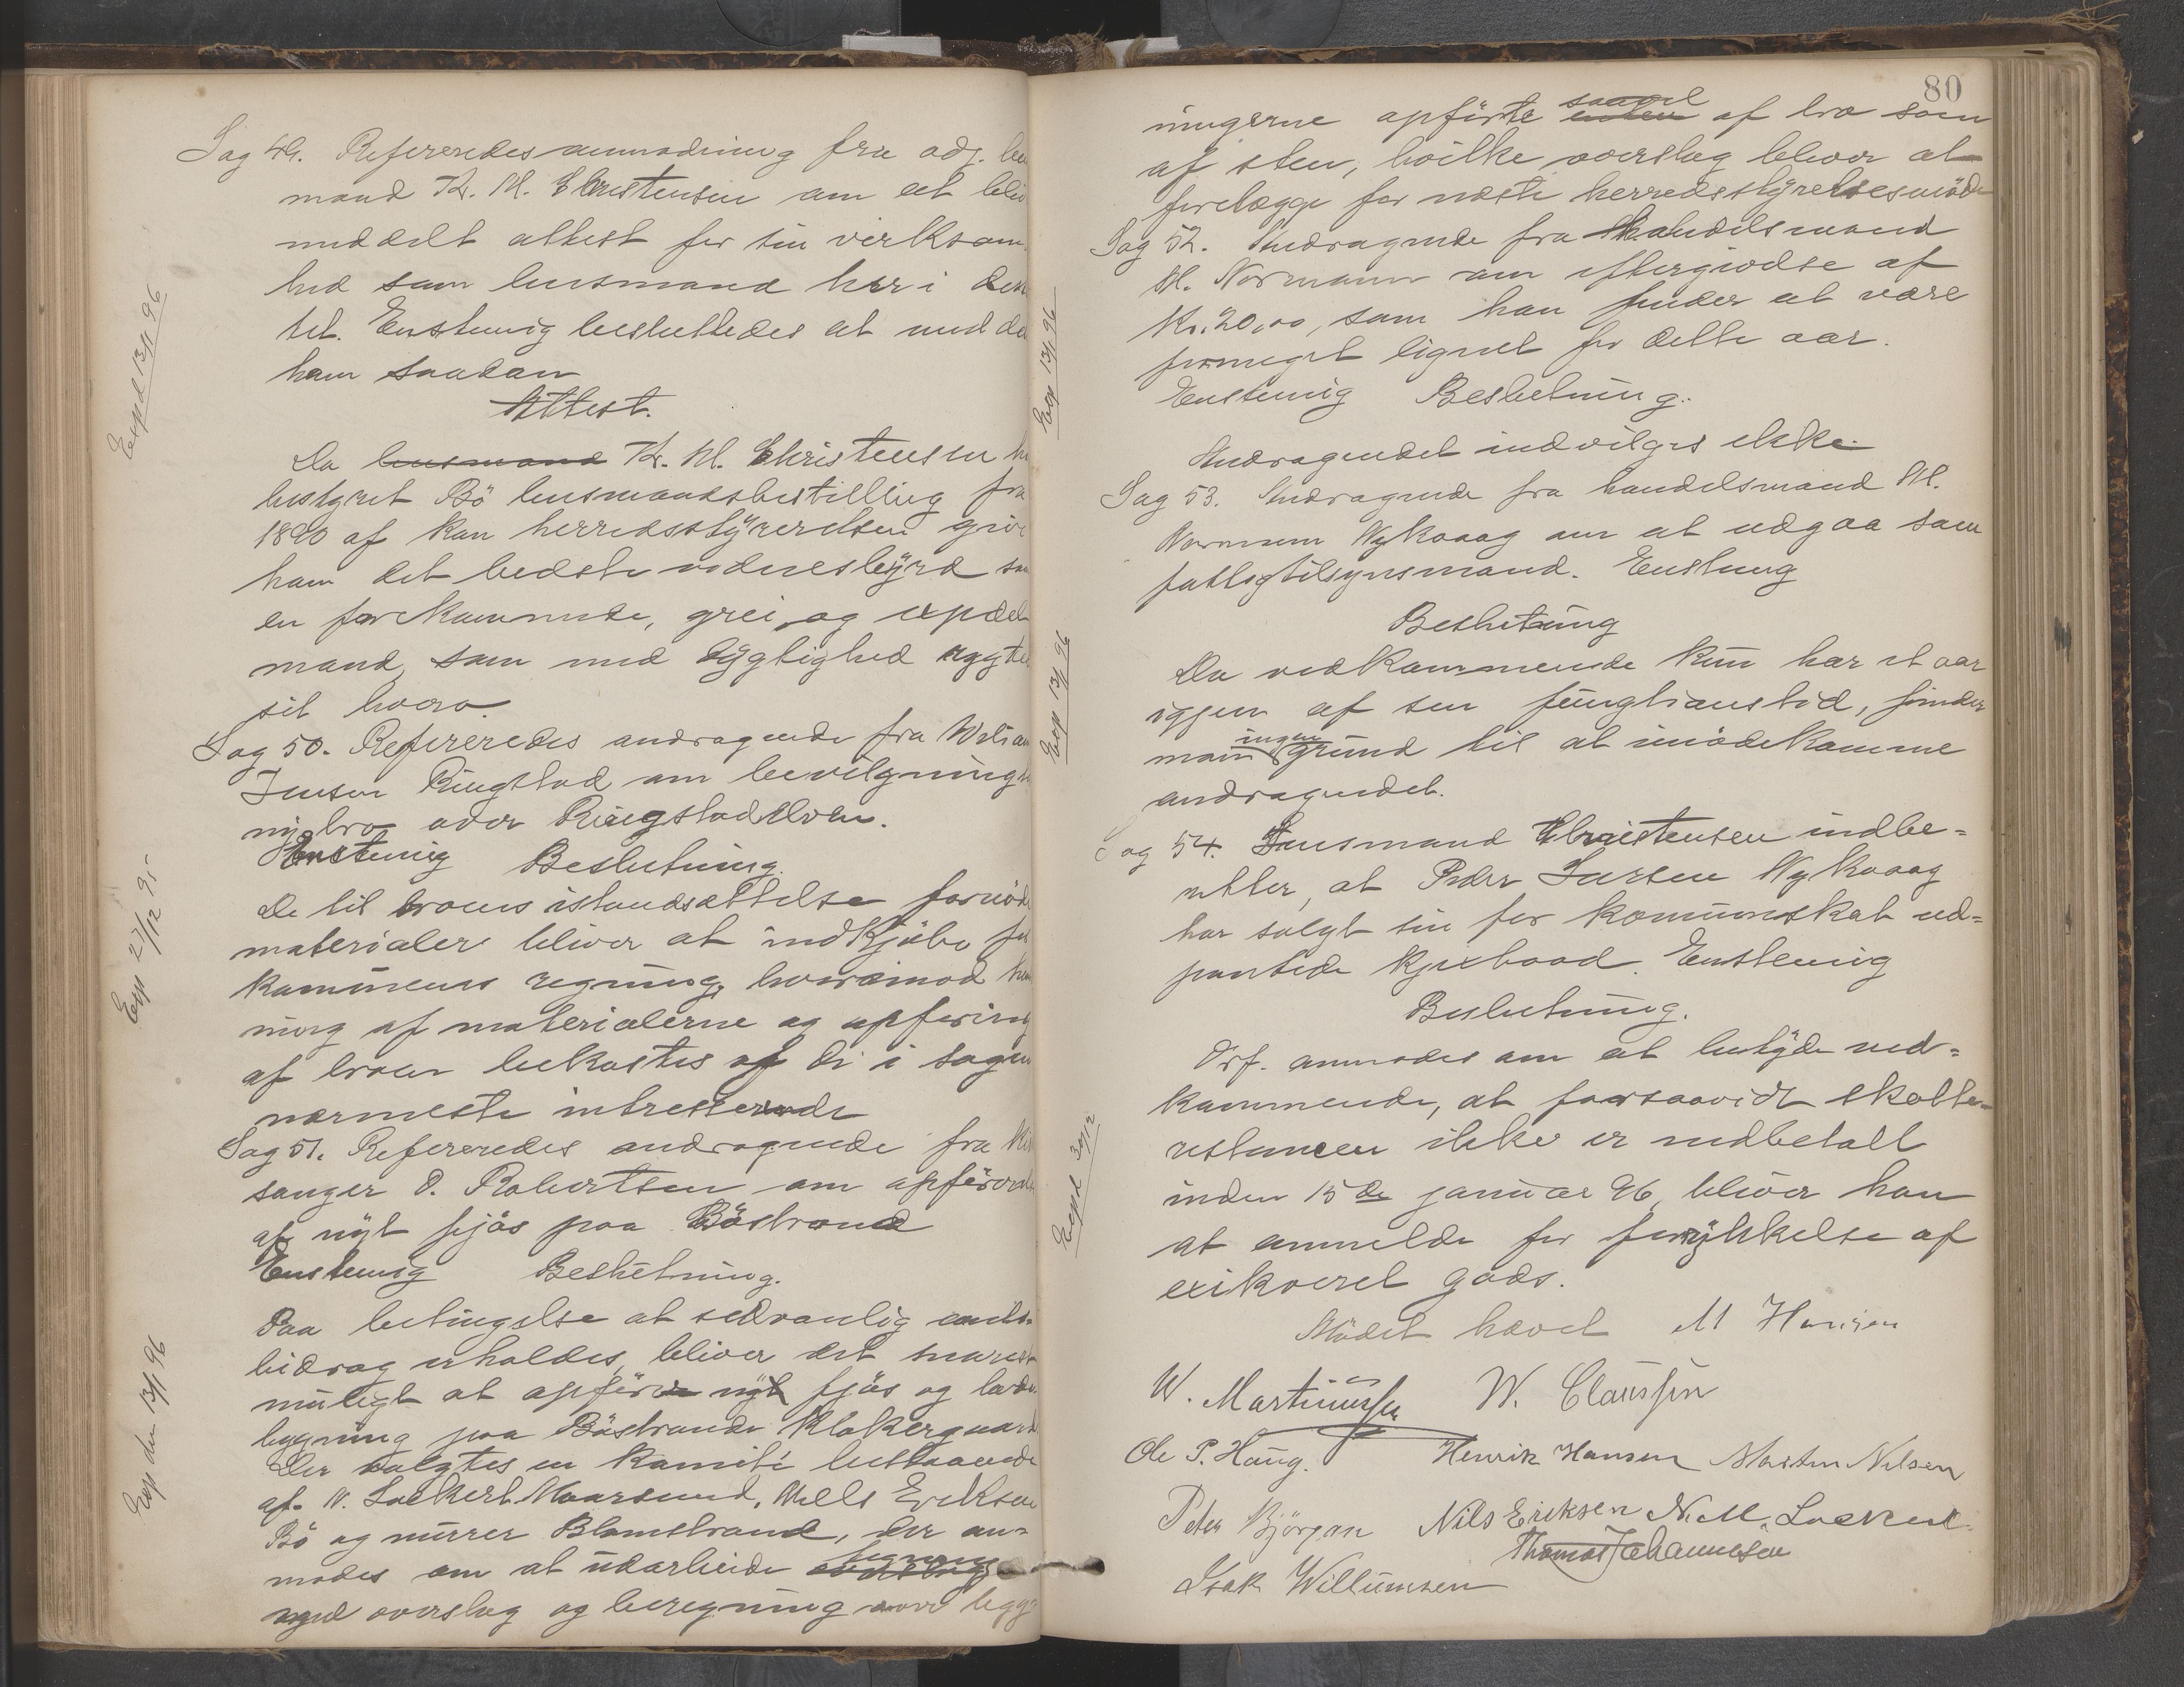 Sag 49. Refereredes anmodning fra adj. len
mand K. M. Christensen om at bliv
meddelt attest for sin virksom
hed som lensmand her i dis
tet. Enstemig besluttedes at medde
ham saadan
Attest.
Da lensmand K. M. Christensen ha
bestyret Bö lensmandsbestilling fra
1890 af kan herredsstyrerelsen give
ham det bedste vidnesbyrd som
en forekommende, grei og
mand, som med dygtighed røgte
sit hverv.
Sag 50. Refereredes andragende fra
Jensen Ringstad om bevilgning
ny bro over Ringstadelven.
Enstemig Beslutning.
De til broens istandsættelse fornöd
materialer bliver at indkjöbe for
kommunens regning, hvorimod
ning af materialerne og opföring
af broen bekostes af de i sagen
nærmeste intresserede
Sag 51. Refereredes andragende fra Kir
sanger O. Robertsen om opförende
af nyt fjös paa Böstrand
Enstemig Beslutning.
Paa betingelse at sedvanlig amts-
bidrag erholdes, bliver det snarest
muligt at opföre nyt fjös og lade
bygning paa Böstrands klokkergaard
Der valgtes en komité bestaaende
af N. Lockert Vaarsund, Nils Eriksen
Bö og murer Blomstrand, der an-
modes om at udarbeide tegning
med overslag og beregning over bygg
Expd 13/1 96
Exp 27/12 95
Exp den 13/1 96
80
ningerne opförte saavel enten af træ som
af sten, hvilke overslag bliver at
forelægge for næste herredsstyrelsesmöde
Sag 52. Andragende fra handelsmand
M. Normann om eftergivelse af
Kr. 20,00, som han finder at være
formeget lignet for dette aar.
Enstemig Beslutning.
Andragendet indvilges ikke.
Sag 53. Andragende fra handelsmand M.
Normann Nykvaag om at udgaa som
fattigtilsynsmand. Enstemig
Beslutning
Da vedkommende kun har et aar
igjen af sin funktionstid, finder
man ingen grund til at imödekomme
andragendet.
Sag 54. Lensmand Christensen indbe-
retter, at Peder Larsen Nykvaag
har solgt sin for komuneskat ud-
pantede kjexbaad. Enstemig
Beslutning.
Orf. anmodes om at betyde ved-
kommende, at forsaavidt skatte-
restancen ikke er indbetalt
inden 15de januar 96, bliver han
at anmelde for forrykkelse af
exikveret gods.
Mödet hævet M Hansen
W. Martinussen W. Claussen
Ole P. Haug. Henrik Hansen Morten Nilsen
Peter Björgan Nils Eriksen N. M. Lockert
Thomas Johannesen
Isak Willumsen
Exp 13/1 96
Exp 13/1 96
Expd 30/12